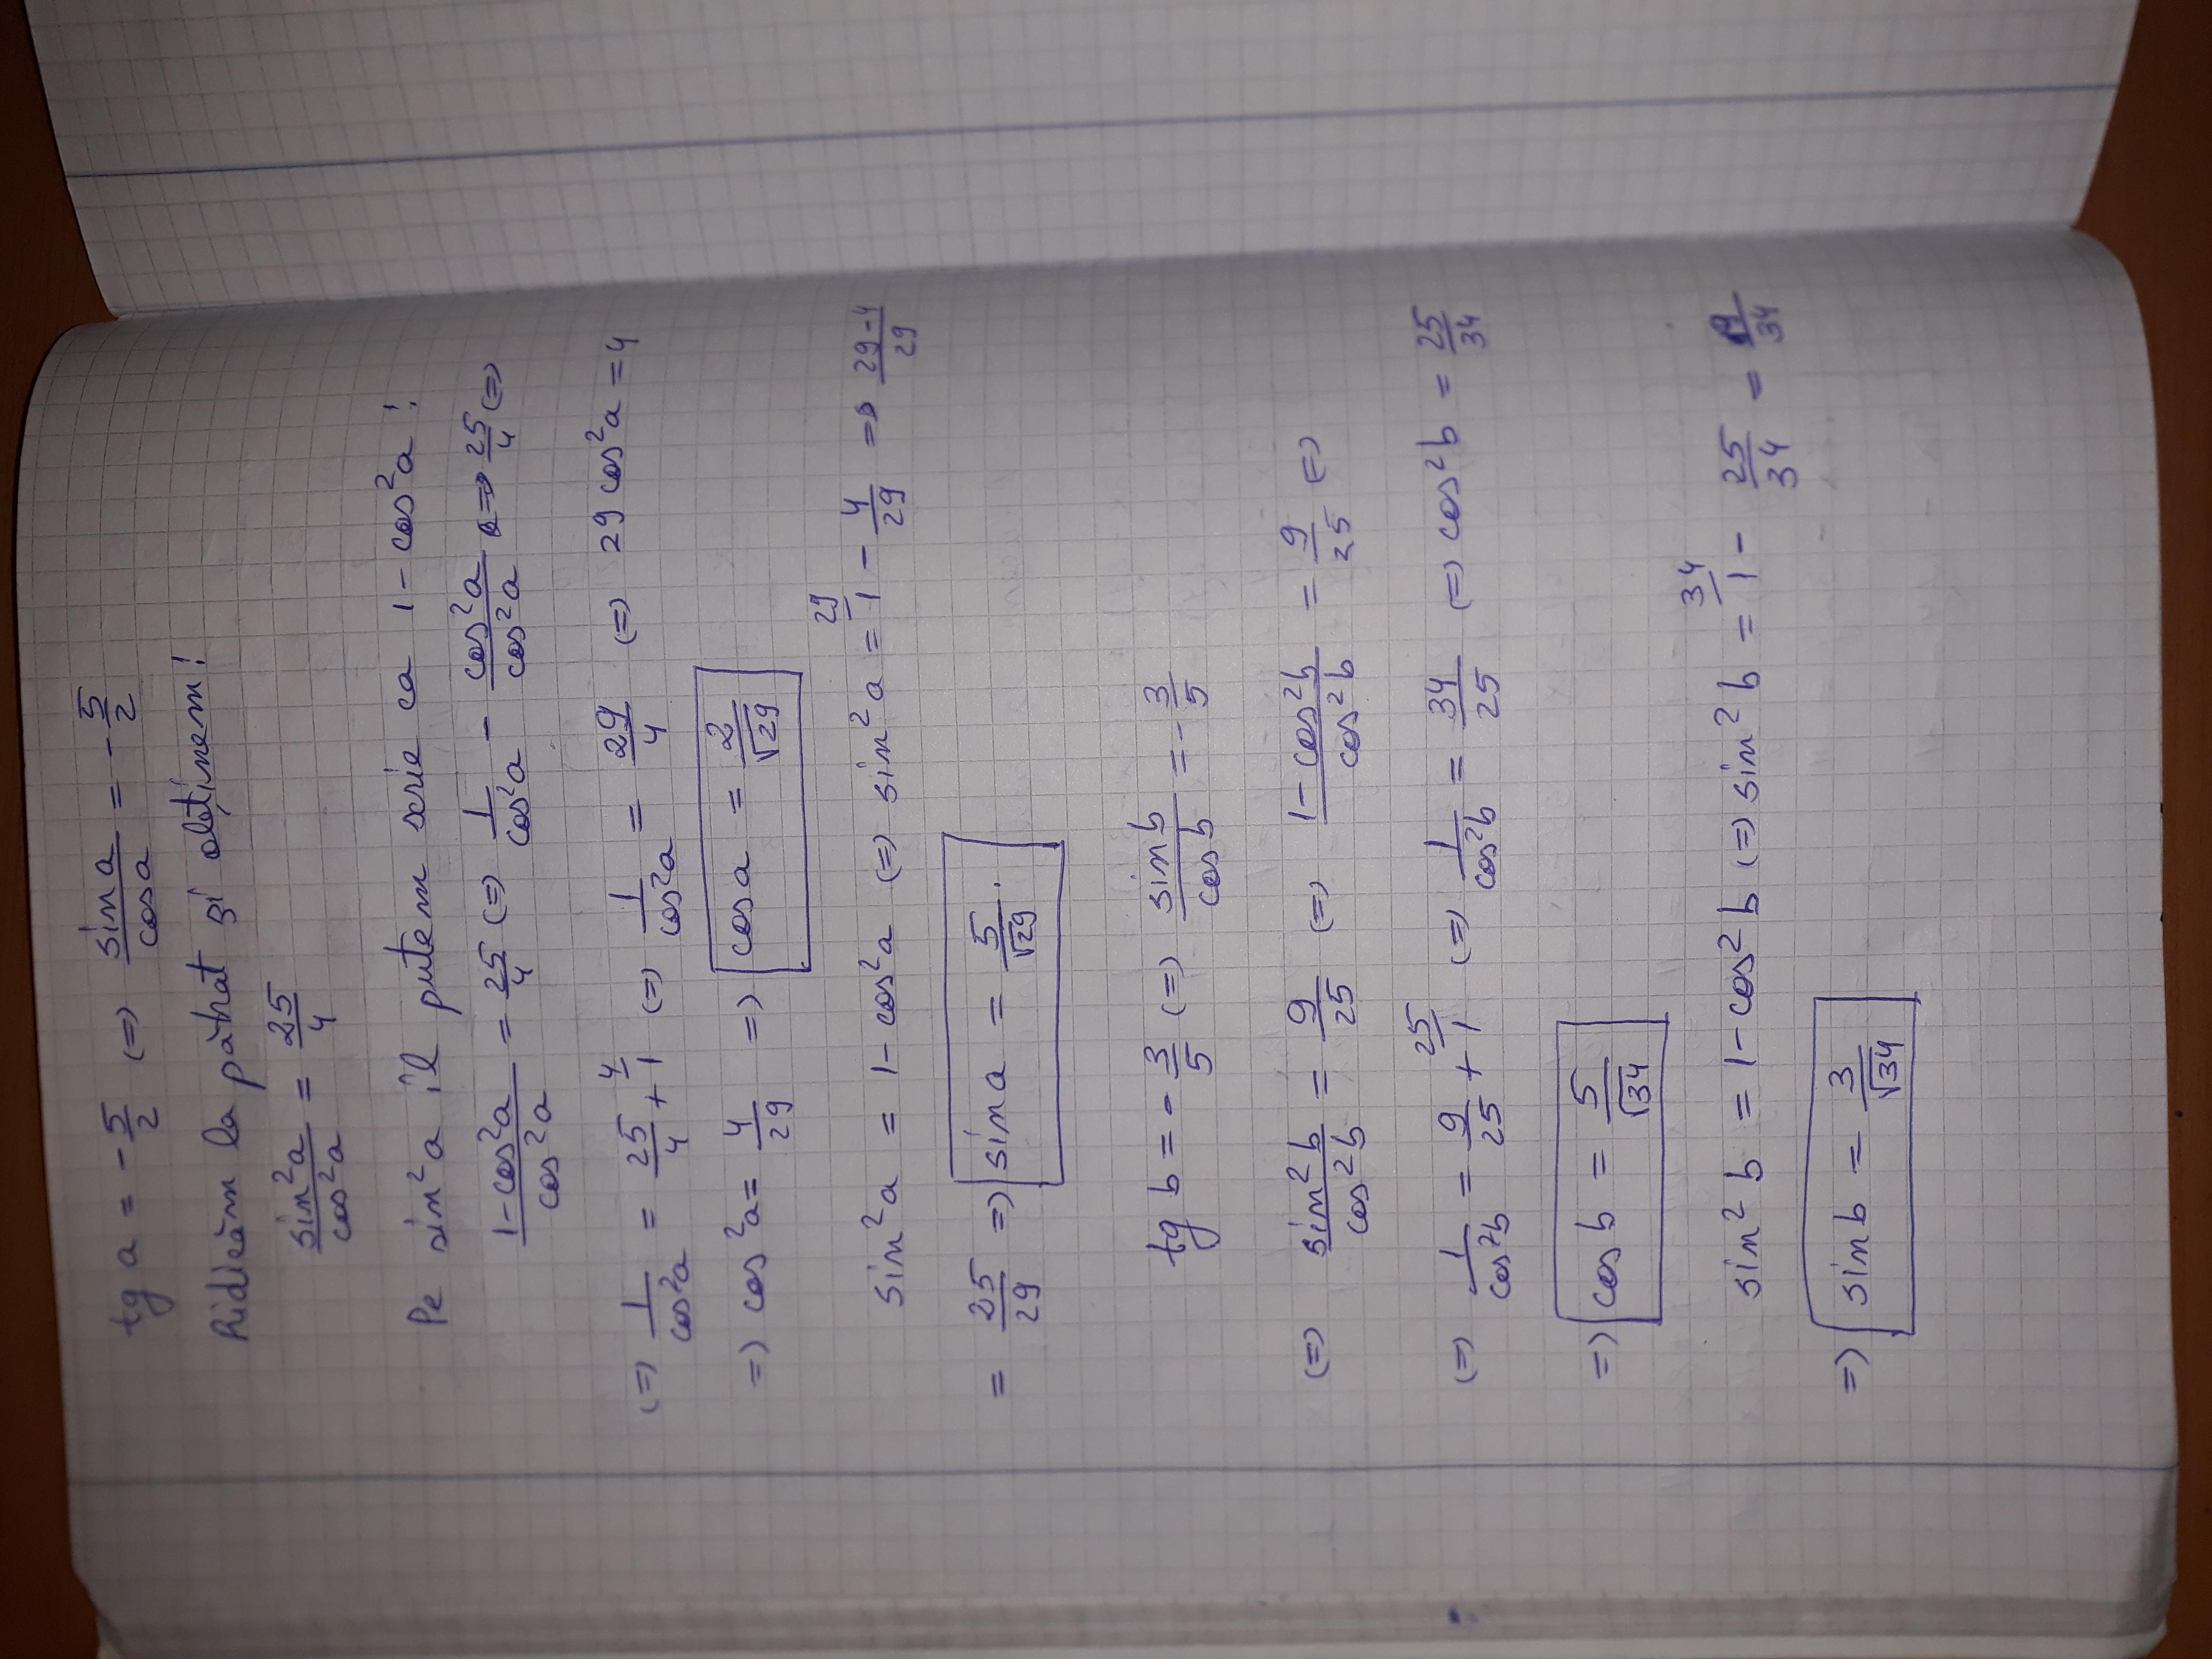 tg a = -5/2 (=) sin a/cos a = -5/2
Ridicăm la pătrat și obținem:
sin²a/cos²a = 25/4
Pe sin²a îl putem scrie ca 1-cos²a:
(1-cos²a)/cos²a = 25/4 (=) 1/cos²a - cos²a/cos²a = 25/4 (=)
(=) 1/cos²a = 25/4 + ⁴⁄1 (=) 1/cos²a = 29/4 (=) 29cos²a = 4
=) cos²a = 4/29 =) cos a = 2/√29
sin²a = 1-cos²a (=) sin²a = ²⁹⁄1 - 4/29 = (29-4)/29
= 25/29 =) sin a = 5/√29.
tg b = -3/5 (=) sin b/cos b = -3/5
(=) sin²b/cos²b = 9/25 (=) (1-cos²b)/cos²b = 9/25 (=)
(=) 1/cos²b = 9/25 + ²⁵⁄1 (=) 1/cos²b = 34/25 (=) cos²b = 25/34
=) cos b = 5/√34
sin²b = 1-cos²b (=) sin²b = ³⁴⁄1 - 25/34 = 9/34
=) sin b = 3/√34